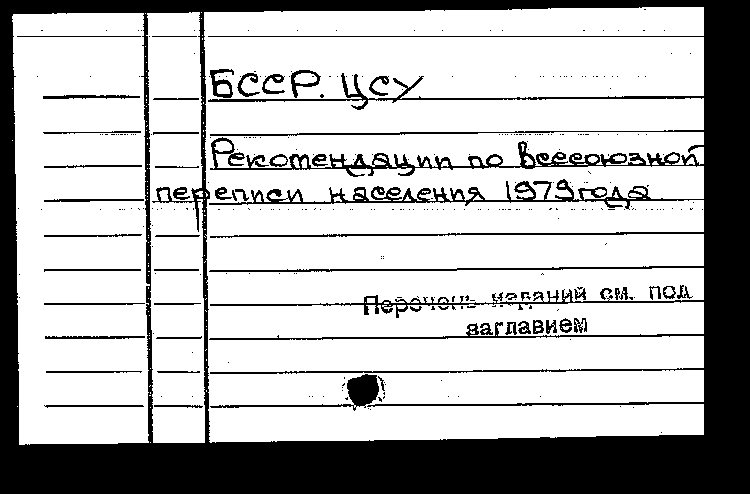 БССР. ЦСУ
Рекомендации по Всесоюзной
переписи населения 1979 года
Перечень изданий см. под
заглавием